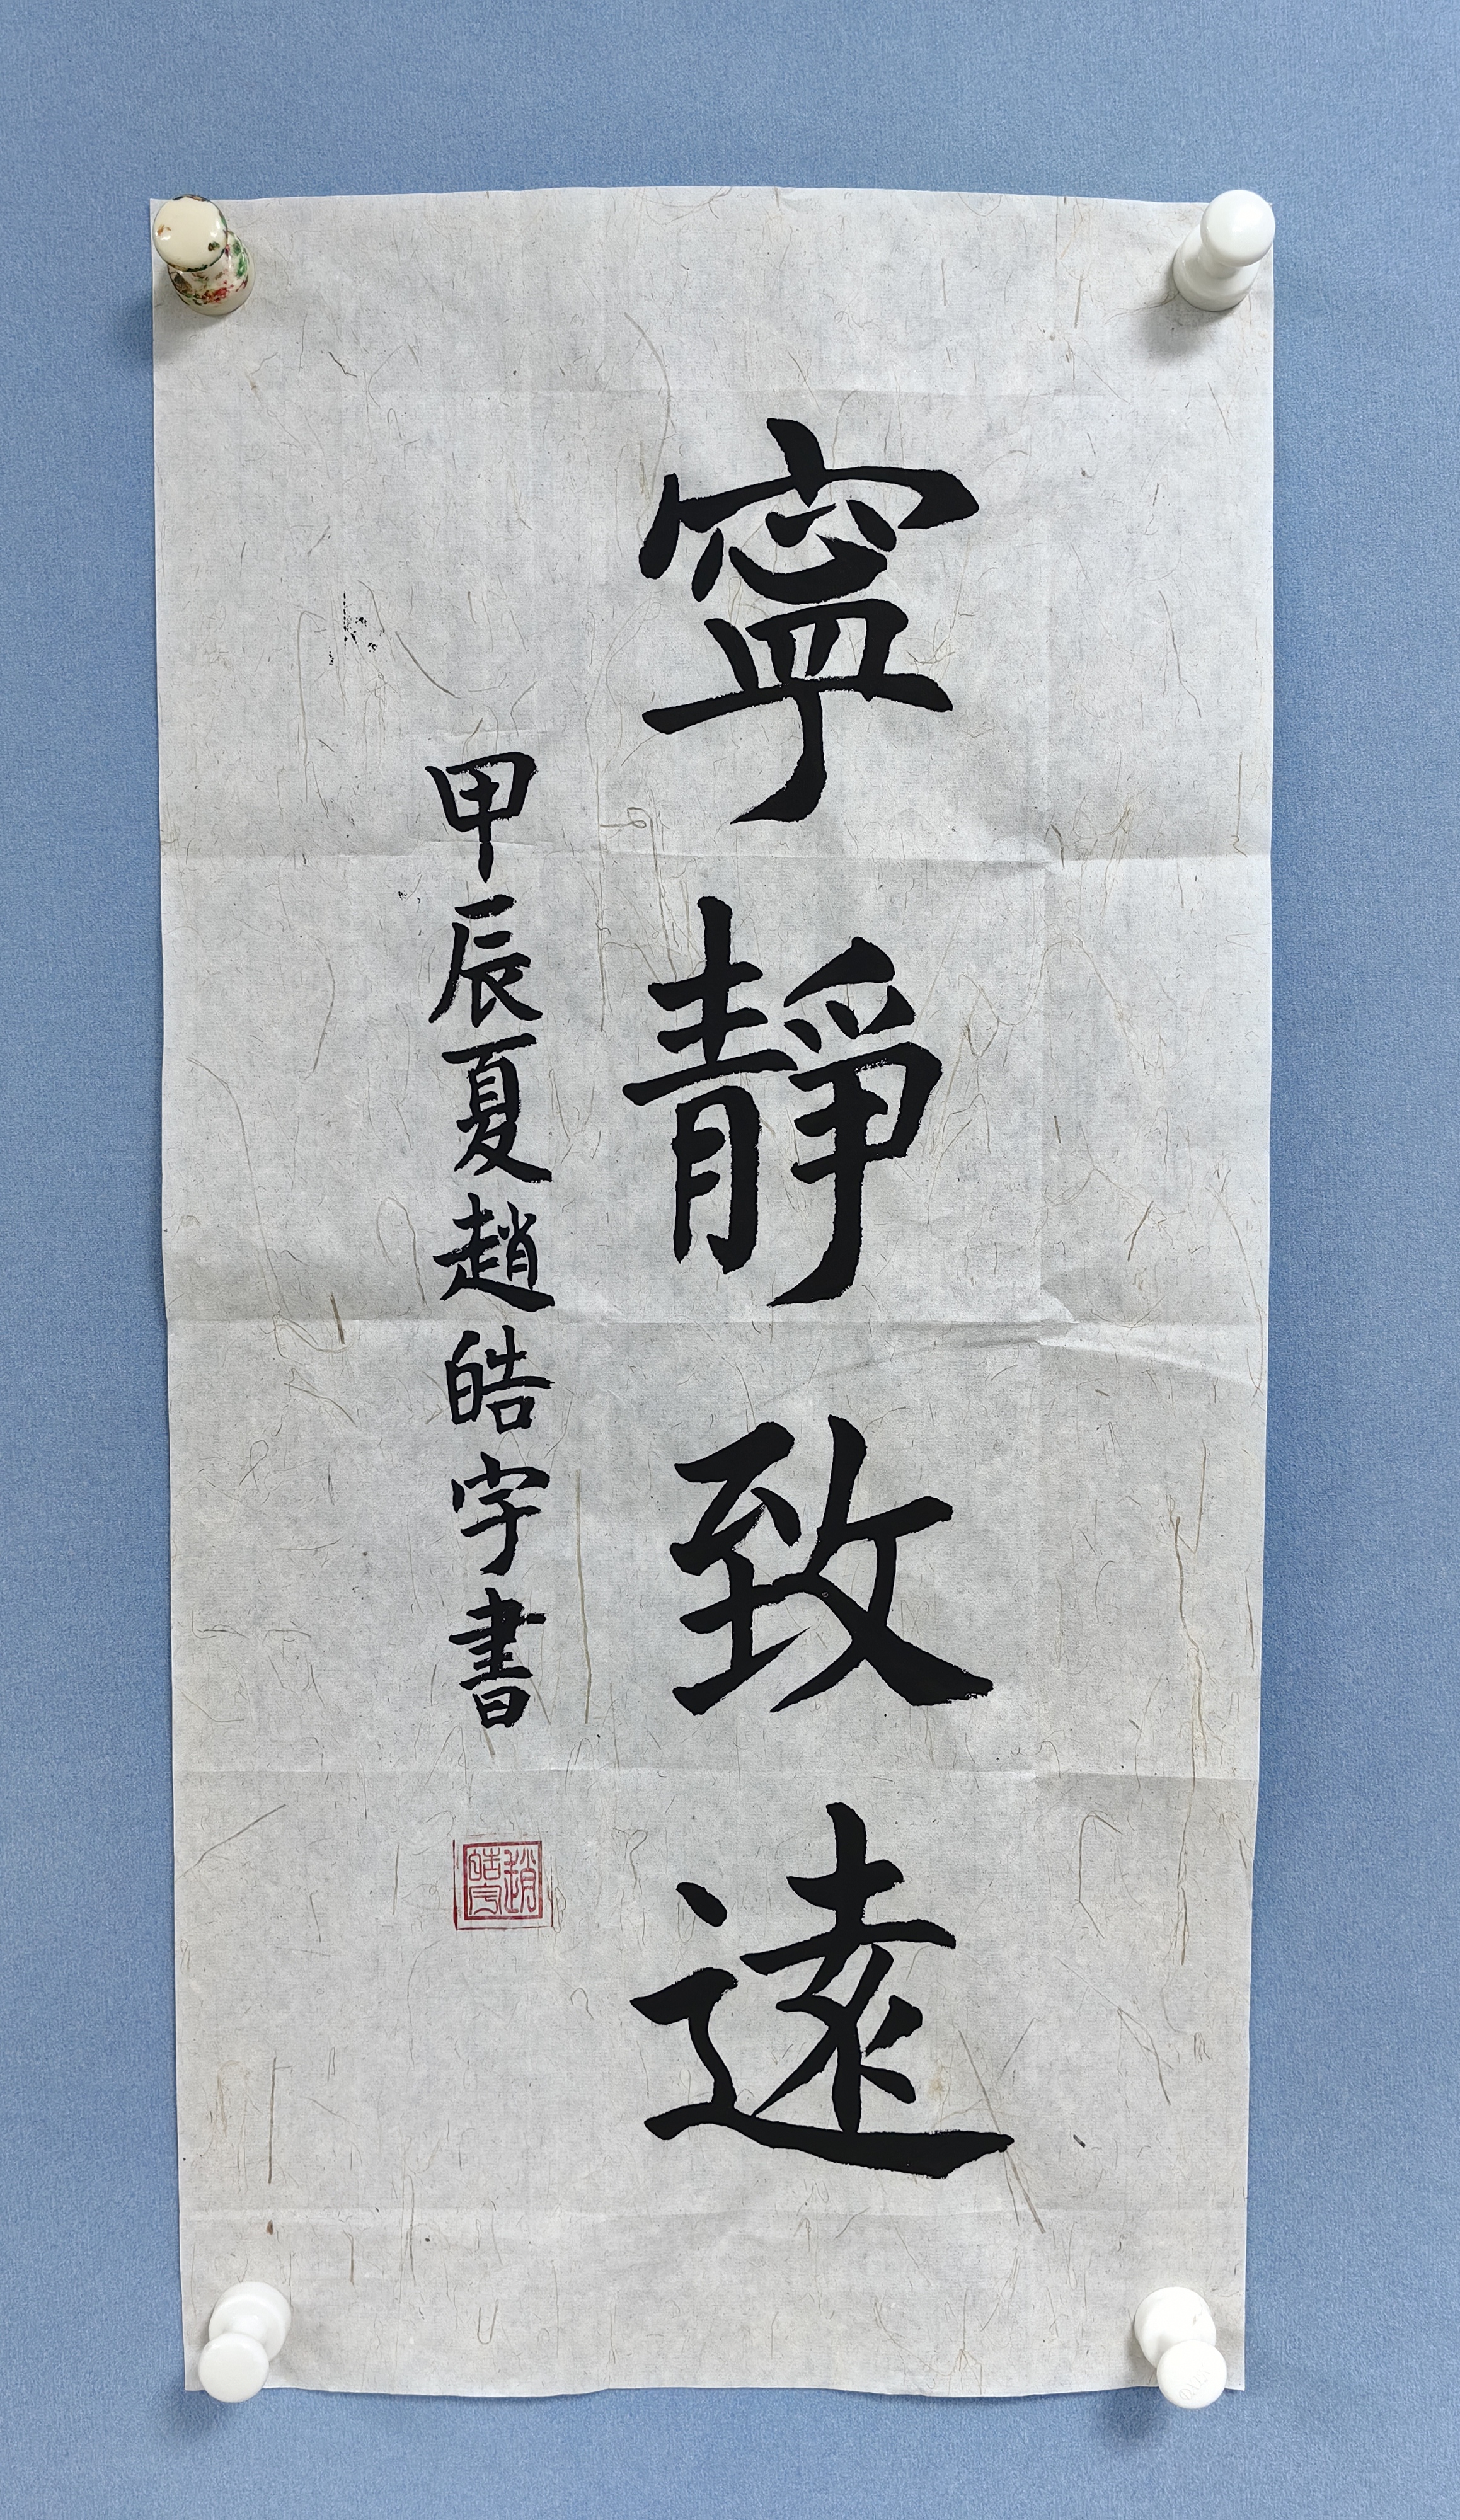 寧靜致遠
甲辰夏趙皓宇書
趙皓宇